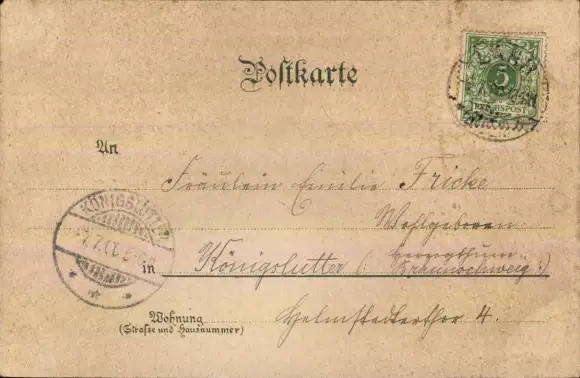 Postkarte
5
REICHSPOST
An
Fräulein Emilie Fricke
Wohlgeboren
KÖNIGSLUTTER
in Königslutter (Herzogthum
Braunschweig.)
Wohnung
(Straße und Hausnummer)
Helmstedterthor 4.